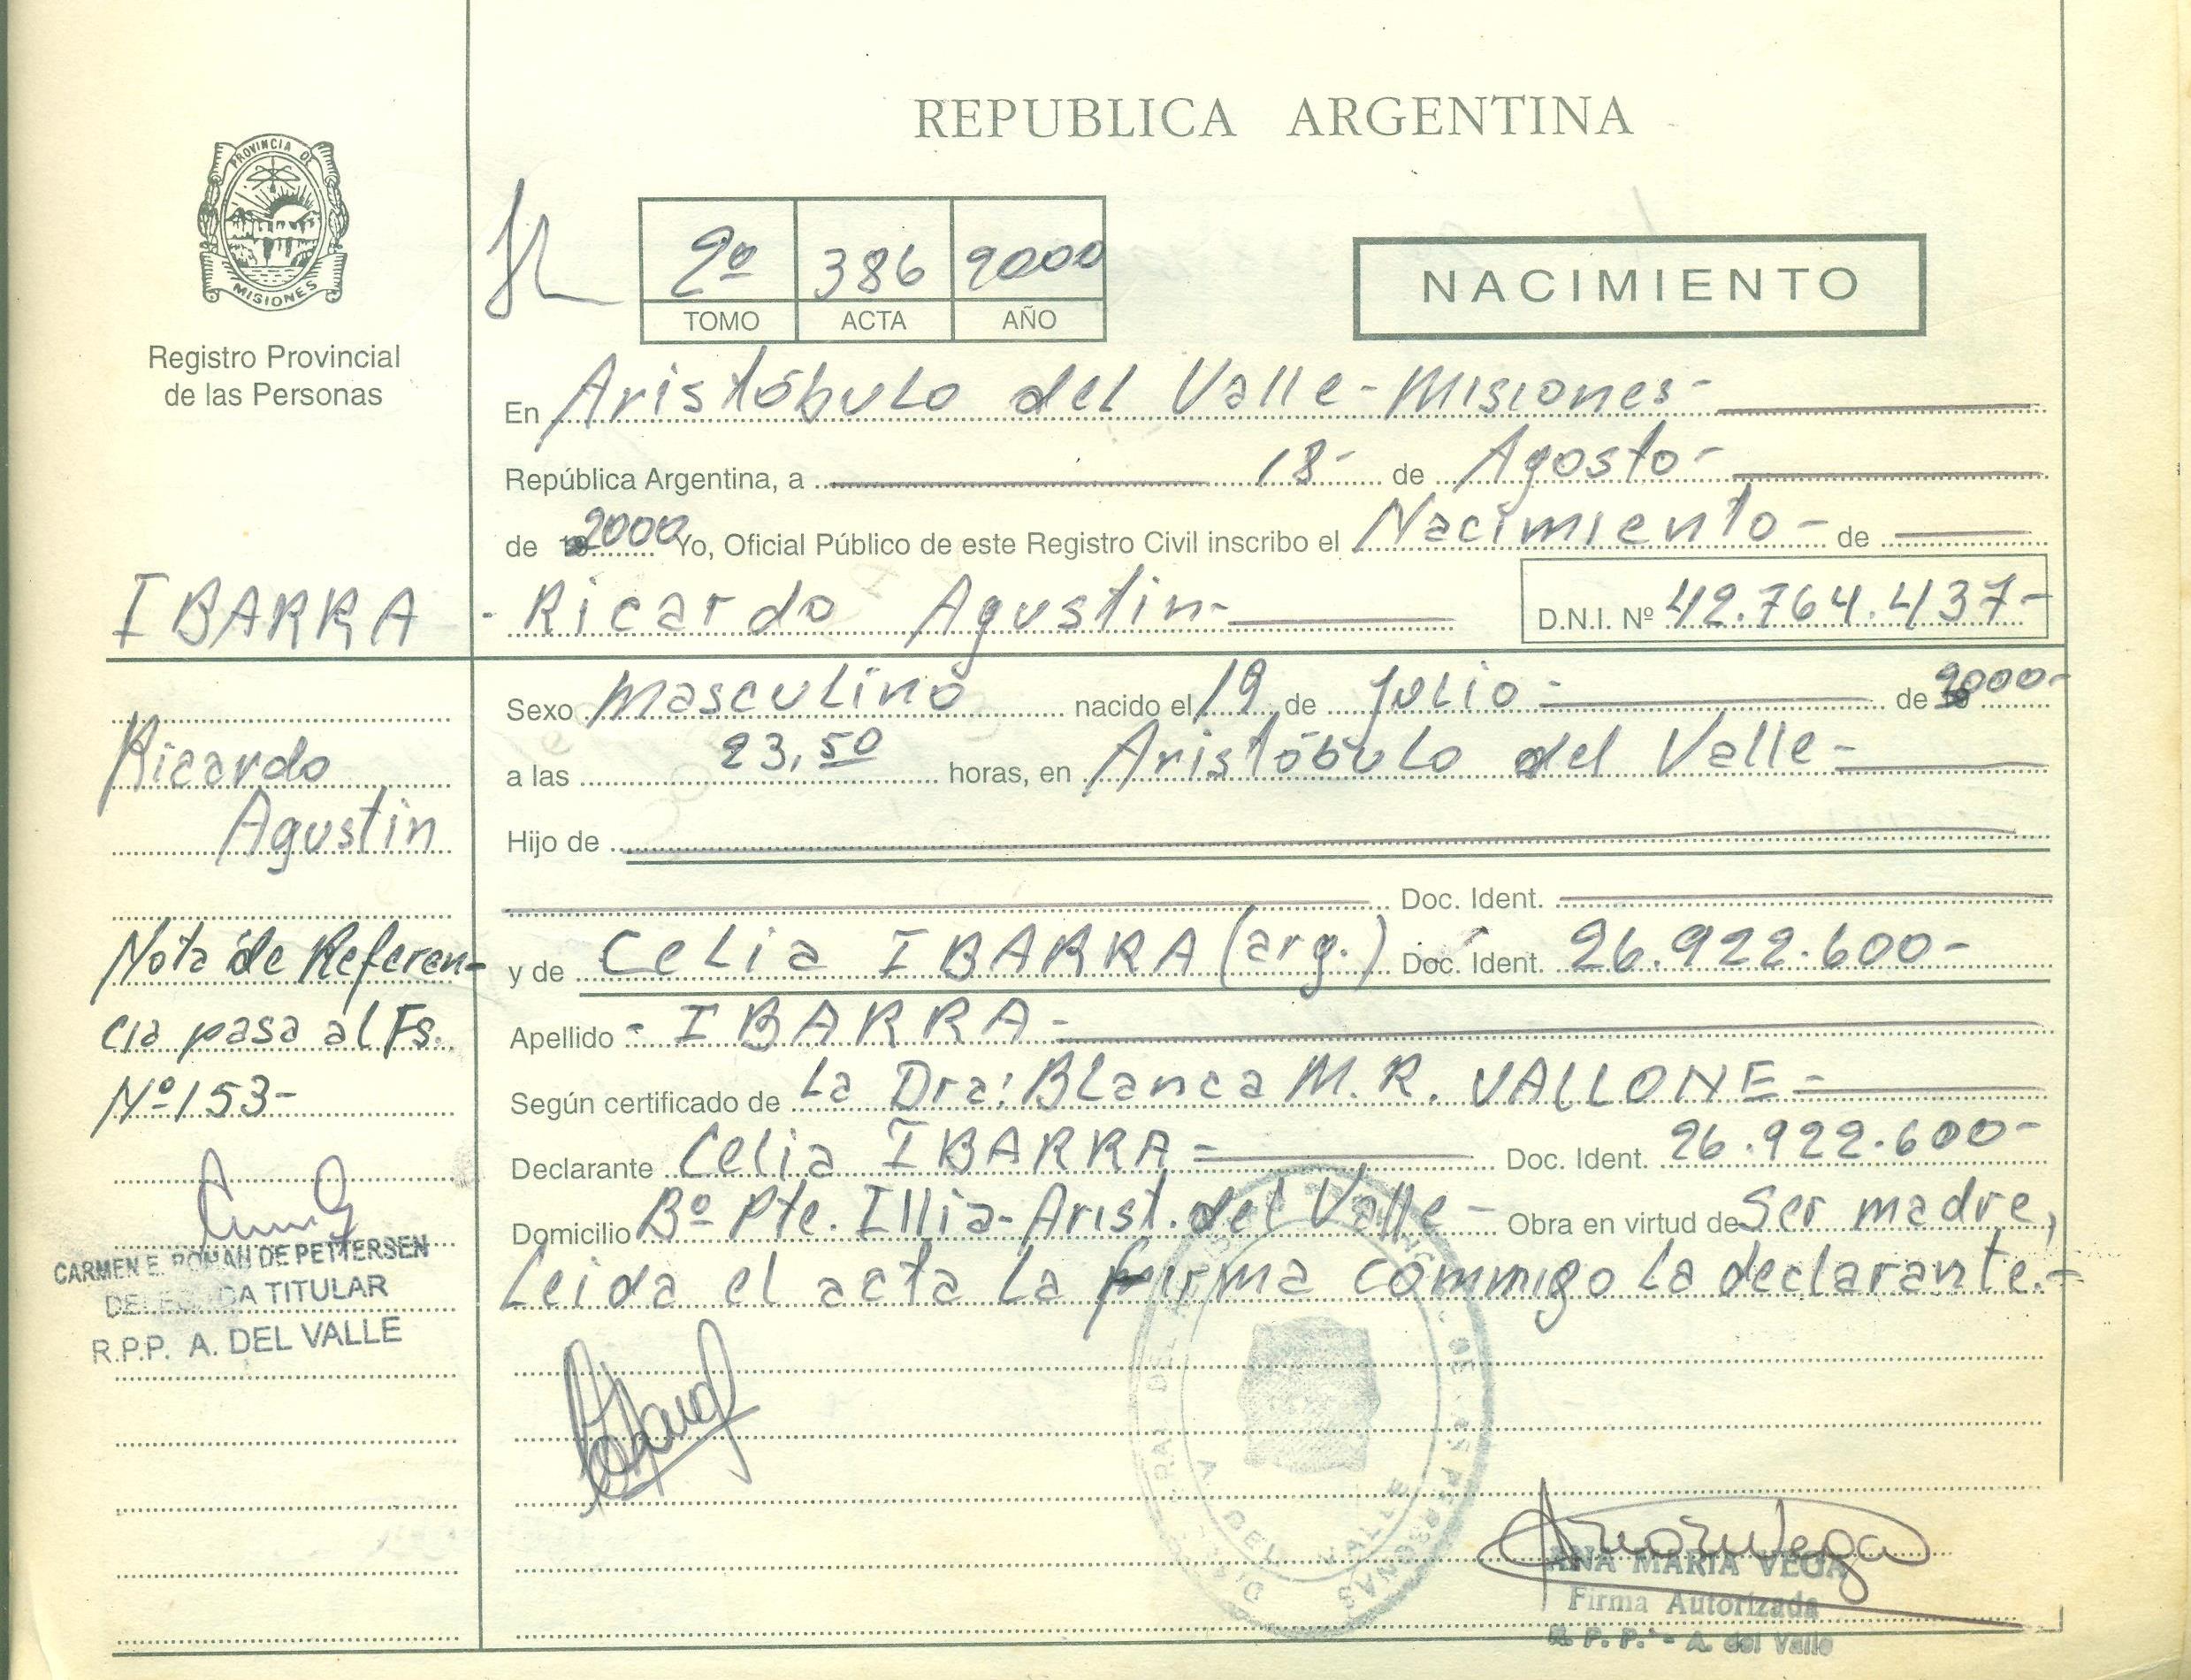 REPUBLICA ARGENTINA
PROVINCIA DE
MISIONES
Registro Provincial
de las Personas
2º 386 2000
TOMO ACTA AÑO
NACIMIENTO
En Aristóbulo del Valle - Misiones-
República Argentina, a 18- de Agosto-
de 2000 Yo, Oficial Público de este Registro Civil inscribo el Nacimiento- de
IBARRA - Ricardo Agustin- D.N.I. Nº 42.764.437-
Sexo Masculino nacido el 19 de Julio- de 2000-
a las 23,50 horas, en Aristóbulo del Valle-
Hijo de
Doc. Ident.
y de Celia IBARRA (arg.) Doc. Ident. 26.922.600-
Apellido - IBARRA-
Según certificado de La Dra: Blanca M.R. VALLONE-
Declarante Celia IBARRA- Doc. Ident. 26.922.600-
Domicilio Bº Pte. Illia-Arist. del Valle- Obra en virtud de Ser madre,
Leida el acta la firma commigo la declarante.-
Ricardo
Agustin
Nota de Referen-
cia pasa al Fs.
Nº 153-
CARMEN E. ROMAN DE PETTERSEN
DELEGADA TITULAR
R.P.P. A. DEL VALLE
A DEL VALLE
ANA MARIA VEGA
Firma Autorizada
R. P. P. - A. del Valle